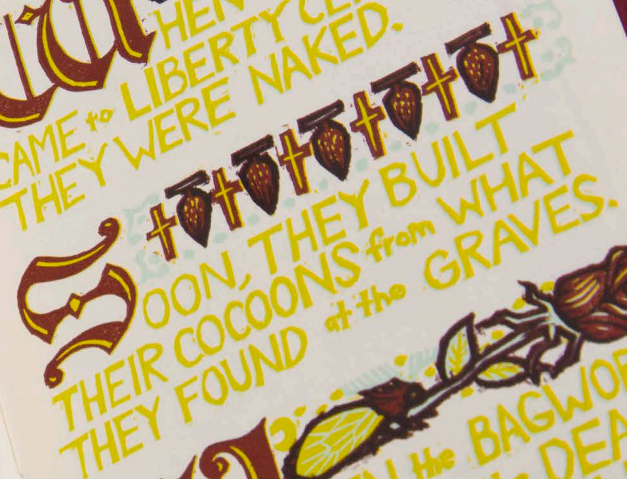 HEN
CAME to LIBERTY
THEY WERE NAKED.
SOON, THEY BUILT
THEIR COCOONS from WHAT
THEY FOUND at the GRAVES.
the BAGWOR
DEA